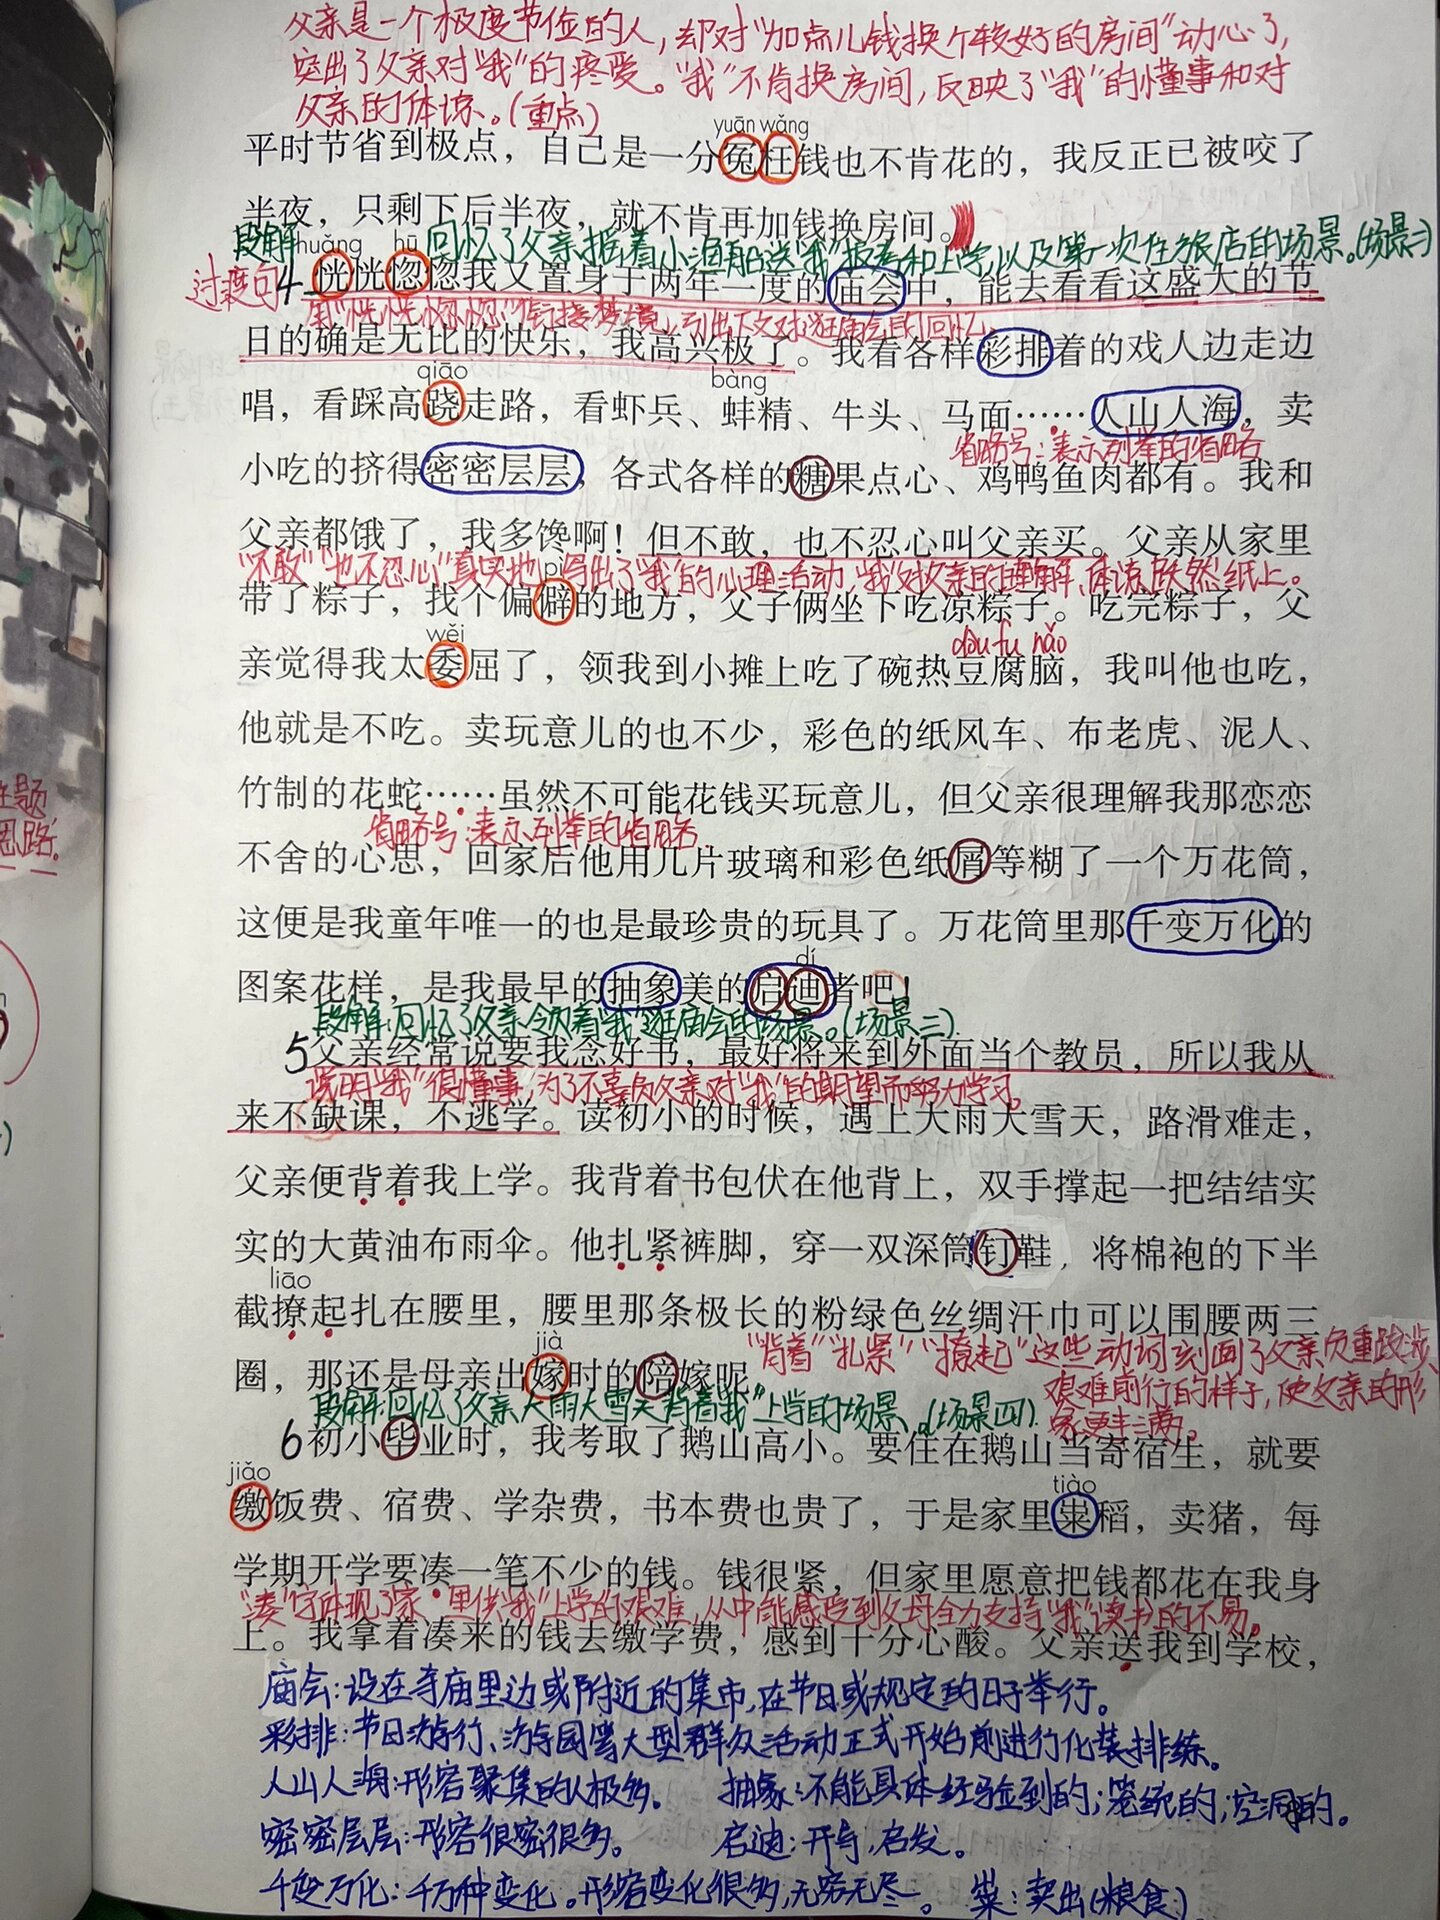 父亲是一个极度节俭的人，却对“加点儿钱换个较好的房间”动心了，
突出了父亲对“我”的疼爱。“我”不肯换房间，反映了“我”的懂事和对
父亲的体谅。(重点)
yuān wǎng
平时节省到极点，自己是一分冤枉钱也不肯花的，我反正已被咬了
半夜，只剩下后半夜，就不肯再加钱换房间。
段解 回忆了父亲摇着小渔船送“我”报考和上学，以及第一次住旅店的场景。(场景二)
huǎng hū
过渡句 4 恍恍惚惚我又置身于两年一度的庙会中，能去看看这盛大的节
用“恍恍惚惚”衔接梦境，引出下文对逛庙会的回忆。
日的确是无比的快乐，我高兴极了。我看各样彩排着的戏人边走边
qiāo bàng
唱，看踩高跷走路，看虾兵、蚌精、牛头、马面……人山人海，卖
省略号：表示列举的省略
小吃的挤得密密层层，各式各样的糖果点心、鸡鸭鱼肉都有。我和
父亲都饿了，我多馋啊！但不敢，也不忍心叫父亲买。父亲从家里
“不敢”“也不忍心”真实地写出了“我”的心理活动，“我”对父亲的理解、体谅跃然纸上。
pì
带了粽子，找个偏僻的地方，父子俩坐下吃凉粽子。吃完粽子，父
wěi dòu fu nǎo
亲觉得我太委屈了，领我到小摊上吃了碗热豆腐脑，我叫他也吃，
他就是不吃。卖玩意儿的也不少，彩色的纸风车、布老虎、泥人、
竹制的花蛇……虽然不可能花钱买玩意儿，但父亲很理解我那恋恋
省略号：表示列举的省略
不舍的心思，回家后他用几片玻璃和彩色纸屑等糊了一个万花筒，
这便是我童年唯一的也是最珍贵的玩具了。万花筒里那千变万化的
dí
图案花样，是我最早的抽象美的启迪者吧！
段解：回忆了父亲领着“我”逛庙会的场景。(场景三)
5 父亲经常说要我念好书，最好将来到外面当个教员，所以我从
说明“我”很懂事，为了不辜负父亲对“我”的期望而努力学习。
来不缺课，不逃学。读初小的时候，遇上大雨大雪天，路滑难走，
父亲便背着我上学。我背着书包伏在他背上，双手撑起一把结结实
实的大黄油布雨伞。他扎紧裤脚，穿一双深筒钉鞋，将棉袍的下半
liāo
截撩起扎在腰里，腰里那条极长的粉绿色丝绸汗巾可以围腰两三
jià
圈，那还是母亲出嫁时的陪嫁呢
“背着”“扎紧”“撩起”这些动词刻画了父亲负重跋涉、
艰难前行的样子，使父亲的形
象更丰满。
段解：回忆了父亲大雨大雪天“背着我”上学的场景。(场景四)
6 初小毕业时，我考取了鹅山高小。要住在鹅山当寄宿生，就要
jiǎo tiào
缴饭费、宿费、学杂费，书本费也贵了，于是家里粜稻，卖猪，每
学期开学要凑一笔不少的钱。钱很紧，但家里愿意把钱都花在我身
“凑”字体现了家里供“我”上学的艰难，从中能感受到父母全力支持“我”读书的不易。
上。我拿着凑来的钱去缴学费，感到十分心酸。父亲送我到学校，
庙会：设在寺庙里边或附近的集市，在节日或规定的日子举行。
彩排：节日游行、游园等大型群众活动正式开始前进行化装排练。
人山人海：形容聚集的人极多。 抽象：不能具体经验到的；笼统的；空洞的。
密密层层：形容很密很多。 启迪：开导，启发。
千变万化：千万种变化。形容变化很多，无穷无尽。 粜：卖出(粮食)
主题
思路。